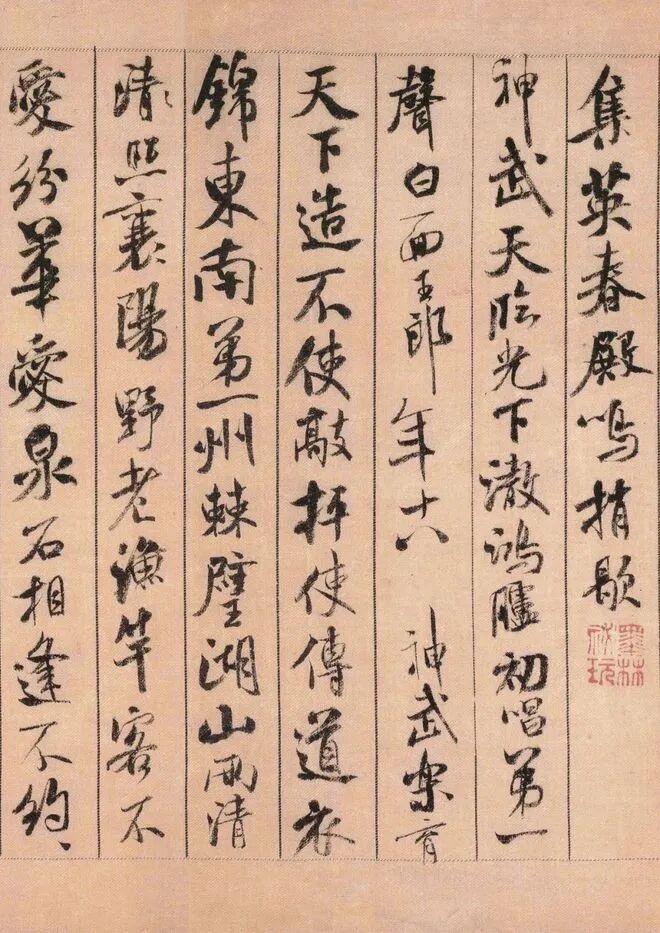 集英春殿鳴捎歇
神武天臨光下澈鴻臚初唱第一
聲白面王郎年十八神武樂育
天下造不使敲枰使傳道衣
錦東南第一州棘璧湖山兩清
清照襄陽野老漁竿客不
愛紛華愛泉石相逢不約〻
墨林秘玩